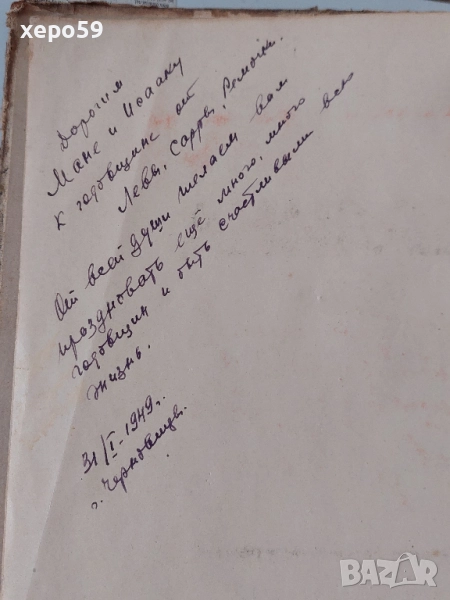 херо59
Дорогим
Мане и Исааку
к годовщине от
Левы, Сарры, Ремочки.
От всей души желаем вам
праздновать ещё много, много
годовщин и быть счастливыми всю
жизнь.
31/I-1949г.
г. Черновцы.
BAZAR.bg